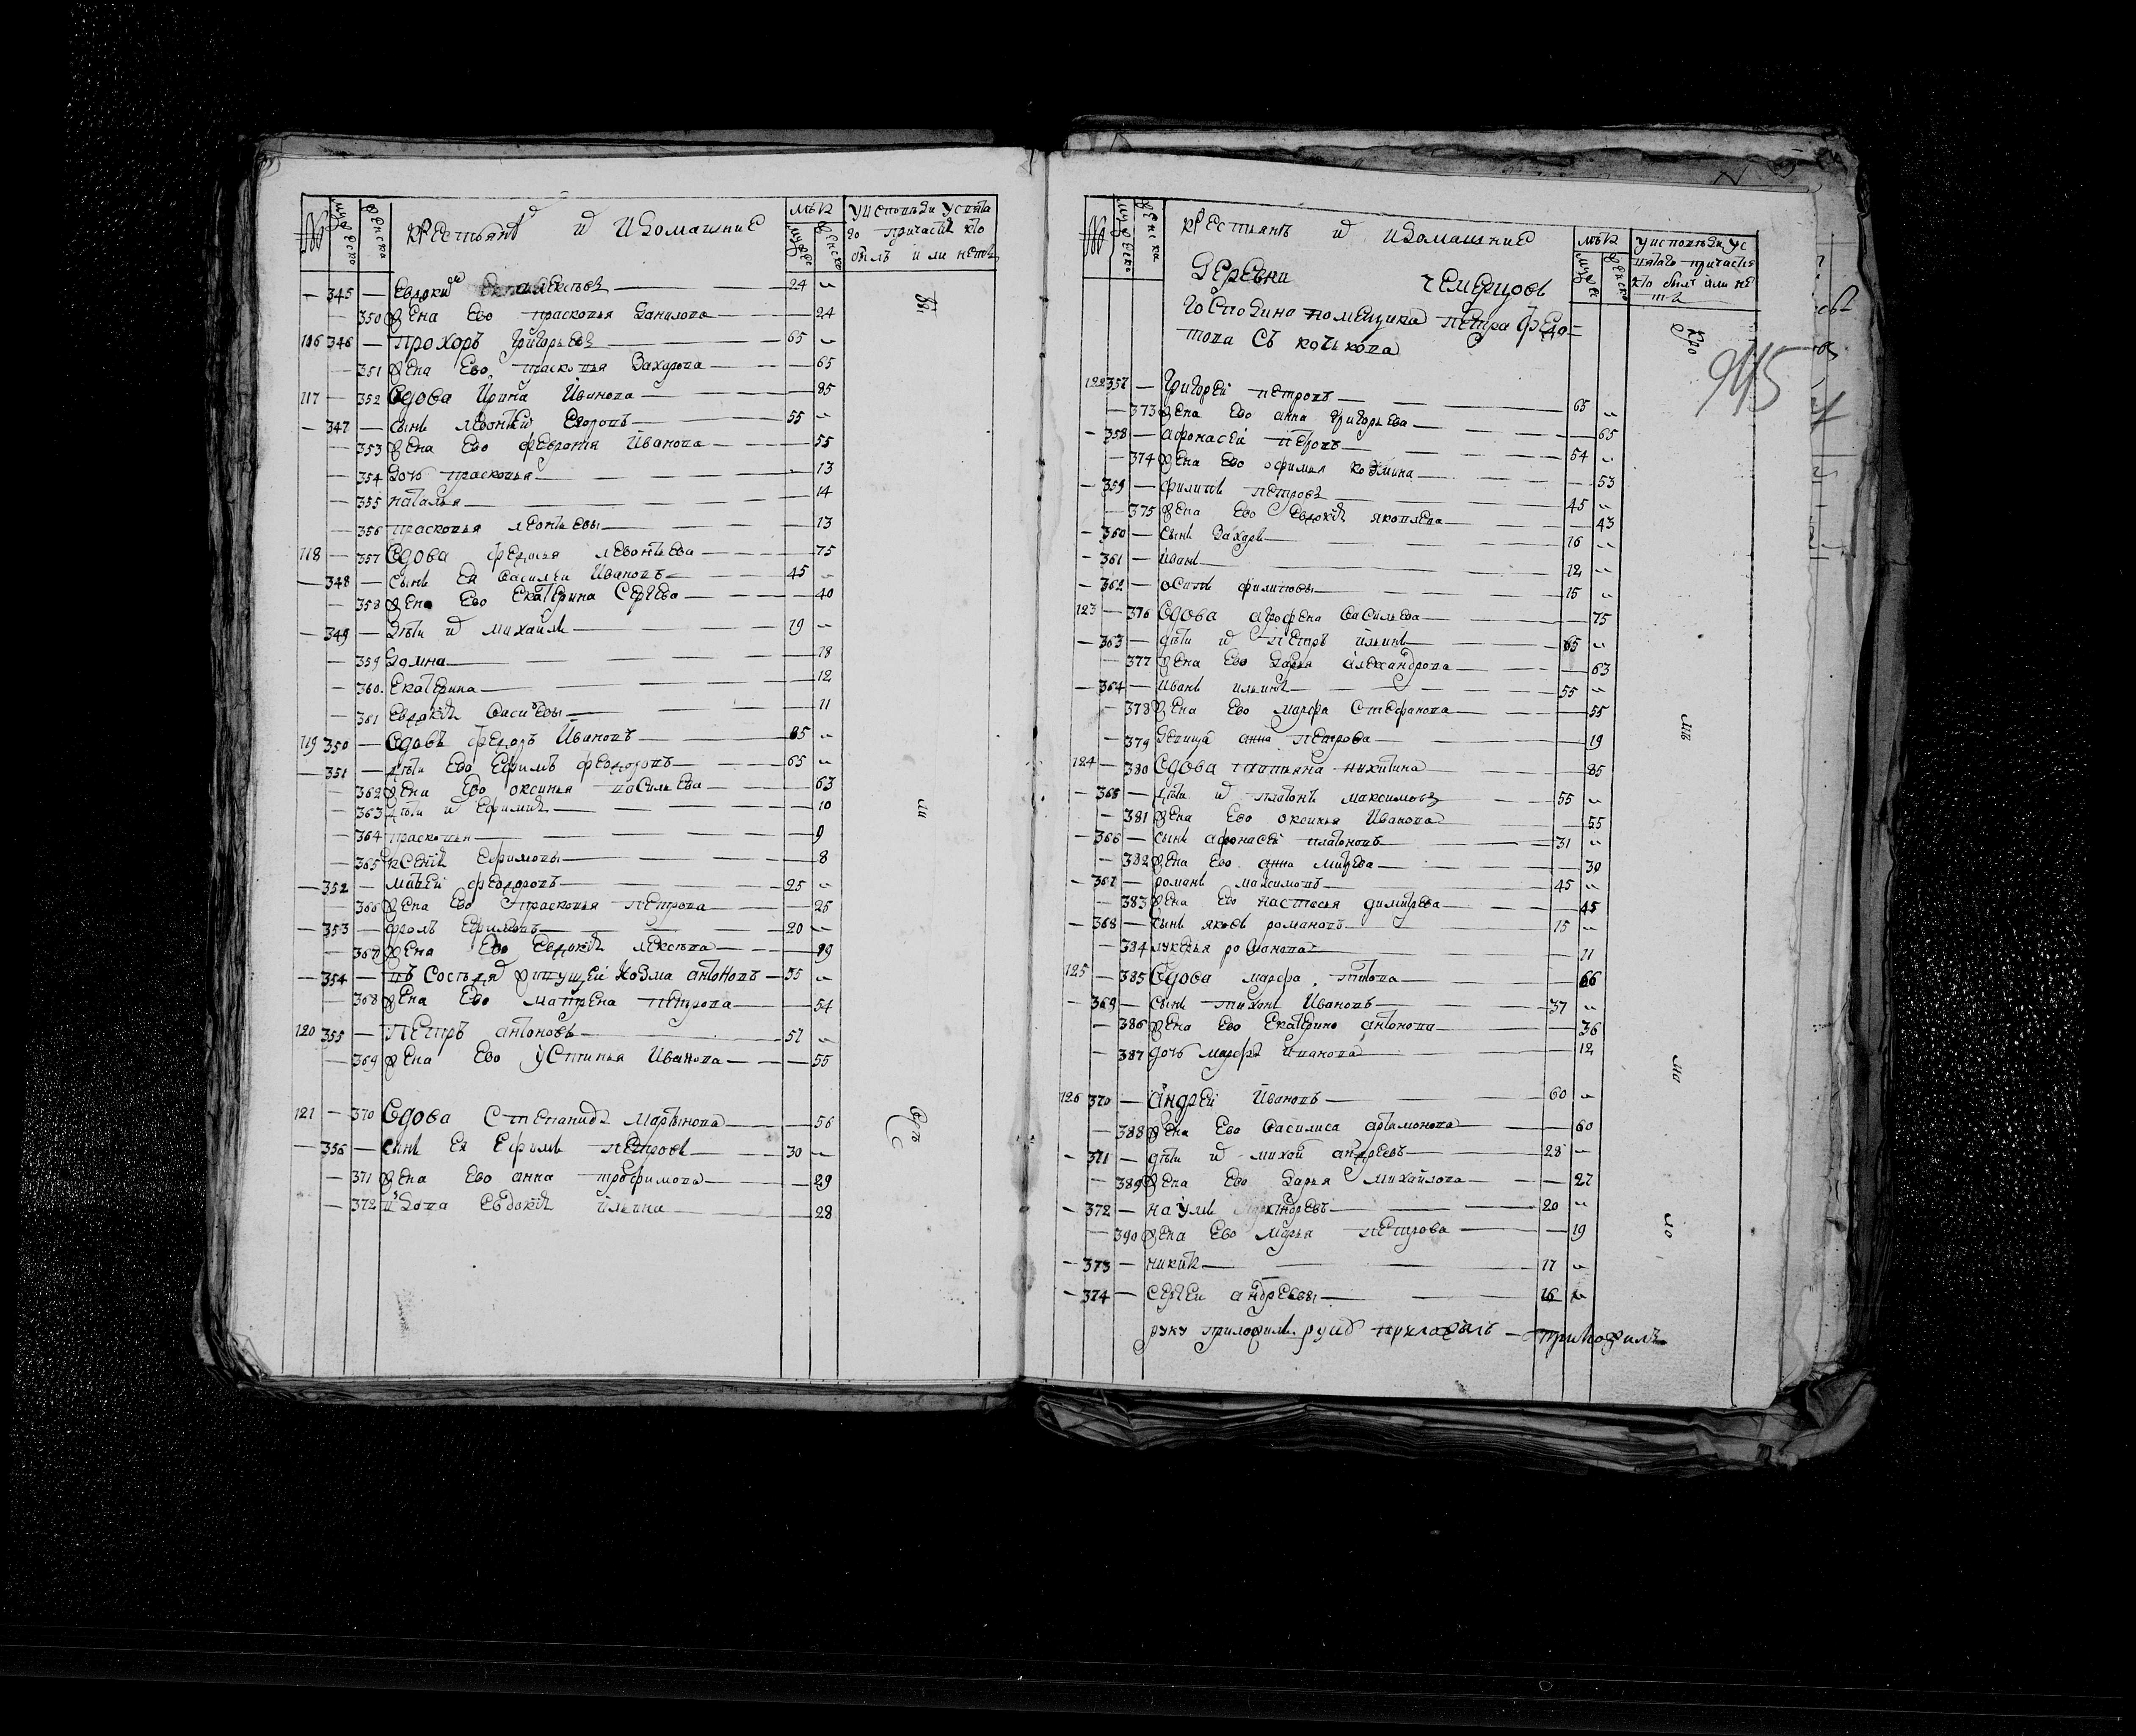 № мужеско женско крестьянѣ и ихдомашние лѣта мужес женско уисповеди усвята
го причастия кто
былъ или нетъ
— 345 — Евдоким — 24 „
— 350 жена Ево прасковья данилова — 24
116 346 — Прохоръ Григорьевъ — 65 „
— 351 жена Ево прасковья Захарова — 65
117 — 352 вдова Ирина Иванова — 85
— 347 — сынъ леонтей — 55 „
— 353 жена Ево феврония Иванова — 55
— 354 дочь прасковья — 13
— 355 наталья — 14
— 356 прасковья леонтьевы — 13
118 — 357 вдова федосья левонтьева — 75
— 348 — сынъ Ея василеи Ивановъ — 45 „
— 358 жена Ево Екатерина Сергева — 40
— 349 — дѣти и михаилъ — 19 „
— 359 домна — 18
— 360 Екатерина — 12
— 361 Евдокия васильевы — 11
119 350 — вдовъ федоръ Ивановъ — 85 „
— 351 — дѣти Ево Ефимъ федоровъ — 65 „
— 362 жена Ево оксинья васильева — 63
— 363 дѣти и Ефимия — 10
— 364 прасковья — 9
— 365 ксения Ефимовы — 8
— 352 — матвеи федоровъ — 25 „
— 366 жена Ево прасковья петрова — 25
— 353 — фролъ Ефимовъ — 20 „
— 367 жена Ево Евдокия — 19
— 354 — въ Соседя живущей Козма антоновъ — 55 „
— 368 жена Ево матрена петрова — 54
120 355 — Петръ антоновъ — 57 „
— 369 жена Ево устинья Иванова — 55
121 — 370 вдова Степанида мартынова — 56
— 356 — сынъ Ея Ефимъ петровъ — 30 „
— 371 жена Ево анна трофимова — 29
— 372 вдова Евдокия ильина — 28
№ мужеско женска крестьянъ и ихдомашние лѣта мужес женско уисповеди ус
вятаго причастия
кто былъ или не
тъ
деревни чемерцовъ
господина помещика петра федо=
това съ
945
122 357 — Григорей петровъ — 65 „
— 373 жена Ево анна Григорьева — 65
— 358 — афонасеи петровъ — 54 „
— 374 жена Ево офимья козмина — 53
— 359 — филипъ петровъ — 45 „
— 375 жена Ево Евдокия яковлева — 43
— 360 — сынъ захаръ — 16 „
— 361 — иванъ — 12 „
— 362 — осипъ филиповы — 15 „
123 — 376 вдова агрофена васильева — 75
— 363 — дѣти и петръ ильинъ — 65 „
— 377 жена Ево дарья александрова — 63
— 364 — иванъ ильинъ — 55 „
— 378 жена Ево марфа Стефанова — 55
— 379 девица анна петрова — 19
124 — 380 вдова татьяна никитина — 85
— 365 — дѣти и платонъ максимовъ — 55 „
— 381 жена Ево оксинья Иванова — 55
— 366 — сынъ афонасеи платоновъ — 31 „
— 382 жена Ево анна — 30
— 367 — романъ максимовъ — 45 „
— 383 жена Ево настасья димитрева — 45
— 368 — сынъ яковъ романовъ — 15 „
— 384 лукерья романова — 11
125 — 385 вдова марфа титова — 66
— 369 — сынъ тихонъ Ивановъ — 37 „
— 386 жена Ево Екатерина антонова — 36
— 387 дочь марфа иванова — 12
126 370 — Андреи Ивановъ — 60 „
— 388 жена Ево василиса артамонова — 60
— 371 — дѣти и андреевъ — 28 „
— 389 жена Ево дарья михайлова — 27
— 372 — наумъ андреевъ — 20 „
— 390 жена Ево марья петрова — 19
— 373 — никита — 17 „
— 374 — сергеи андреевы — 16 „
руку приложилъ — приложилъ